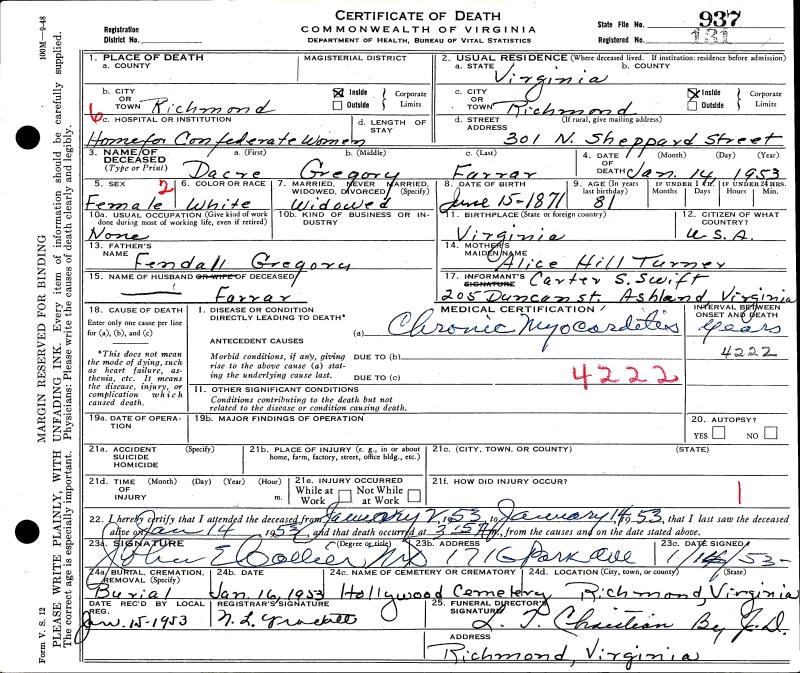 CERTIFICATE OF DEATH
COMMONWEALTH OF VIRGINIA
DEPARTMENT OF HEALTH, BUREAU OF VITAL STATISTICS
Registration District No.
State File No. 937
Registered No. 131
100M—9-48
1. PLACE OF DEATH
a. COUNTY
MAGISTERIAL DISTRICT
2. USUAL RESIDENCE (Where deceased lived. If institution: residence before admission)
a. STATE Virginia b. COUNTY
b. CITY OR TOWN Richmond
Inside
Outside
Corporate Limits
c. CITY OR TOWN Richmond
Inside
Outside
Corporate Limits
6
c. HOSPITAL OR INSTITUTION
Home for Confederate Women
d. LENGTH OF STAY
d. STREET ADDRESS (If rural, give mailing address)
301 N. Sheppard Street
3. NAME OF DECEASED (Type or Print)
a. (First) b. (Middle) c. (Last)
Dacre Gregory Farrar
4. DATE OF DEATH (Month) (Day) (Year)
Jan. 14, 1953
5. SEX 2
Female
6. COLOR OR RACE
White
7. MARRIED, NEVER MARRIED, WIDOWED, DIVORCED (Specify)
Widowed
8. DATE OF BIRTH
June 15-1871
9. AGE (In years last birthday)
81
IF UNDER 1 YR. Months Days
IF UNDER 24 HRS. Hours Min.
10a. USUAL OCCUPATION (Give kind of work done during most of working life, even if retired)
None
10b. KIND OF BUSINESS OR INDUSTRY
11. BIRTHPLACE (State or foreign country)
Virginia
12. CITIZEN OF WHAT COUNTRY?
U.S.A.
13. FATHER'S NAME
Fendall Gregory
14. MOTHER'S MAIDEN NAME
Alice Hill Turner
15. NAME OF HUSBAND OR WIFE OF DECEASED
Farrar
17. INFORMANT'S SIGNATURE Carter S. Swift
205 Duncan st. Ashland, Virginia
18. CAUSE OF DEATH
Enter only one cause per line for (a), (b), and (c)
*This does not mean the mode of dying, such as heart failure, asthenia, etc. It means the disease, injury, or complication which caused death.
MEDICAL CERTIFICATION
INTERVAL BETWEEN ONSET AND DEATH
I. DISEASE OR CONDITION DIRECTLY LEADING TO DEATH*
(a) Chronic Myocarditis years
ANTECEDENT CAUSES
Morbid conditions, if any, giving rise to the above cause (a) stating the underlying cause last.
DUE TO (b)
4222
DUE TO (c)
4222
11. OTHER SIGNIFICANT CONDITIONS
Conditions contributing to the death but not related to the disease or condition causing death.
19a. DATE OF OPERATION
19b. MAJOR FINDINGS OF OPERATION
20. AUTOPSY?
YES NO
21a. ACCIDENT SUICIDE HOMICIDE (Specify)
21b. PLACE OF INJURY (e. g., in or about home, farm, factory, street, office bldg., etc.)
21c. (CITY, TOWN, OR COUNTY) (STATE)
21d. TIME OF INJURY (Month) (Day) (Year) (Hour) m.
21e. INJURY OCCURRED
While at Work Not While at Work
21f. HOW DID INJURY OCCUR?
1
22. I hereby certify that I attended the deceased from January 1953 to January 14, 1953, that I last saw the deceased
alive on Jan 14 1953, and that death occurred at m., from the causes and on the date stated above.
23a. SIGNATURE (Degree or title)
E Collier MD
23b. ADDRESS
Park Ave
23c. DATE SIGNED
1/14/53-
24a. BURIAL, CREMATION, REMOVAL (Specify)
Burial
24b. DATE
Jan. 16, 1953
24c. NAME OF CEMETERY OR CREMATORY
Hollywood Cemetery
24d. LOCATION (City, town, or county) (State)
Richmond, Virginia
DATE REC'D BY LOCAL REG.
Jan. 15-1953
REGISTRAR'S SIGNATURE
25. FUNERAL DIRECTOR'S SIGNATURE
L. T. Christian By J.D.
ADDRESS
Richmond, Virginia
MARGIN RESERVED FOR BINDING
PLEASE WRITE PLAINLY, WITH UNFADING INK. Every item of information should be carefully supplied.
The correct age is especially important. Physicians: Please write the causes of death clearly and legibly.
Form V. S. 12